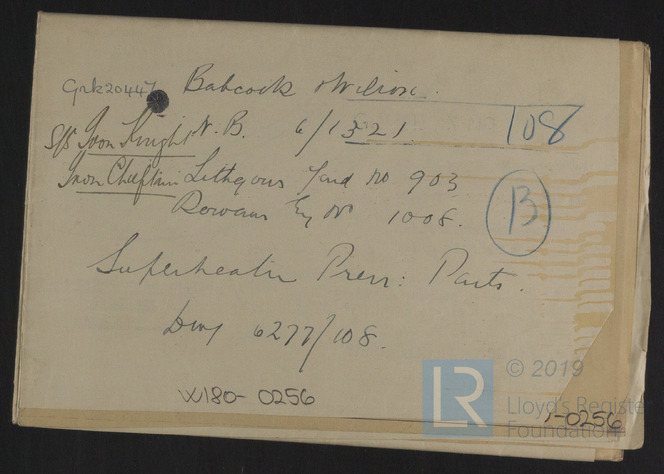 Grk20447 Babcock & Wilcox.
S/S Iron Knight N.B. 6/1321 108
Iron Chieftain Lithgows Yard No 903
Rowans Eng No 1008. B
Superheater Press: Parts.
Dwg 6277/108.
W180-0256
-0256
LR © 2019
Lloyd's Register
Foundation